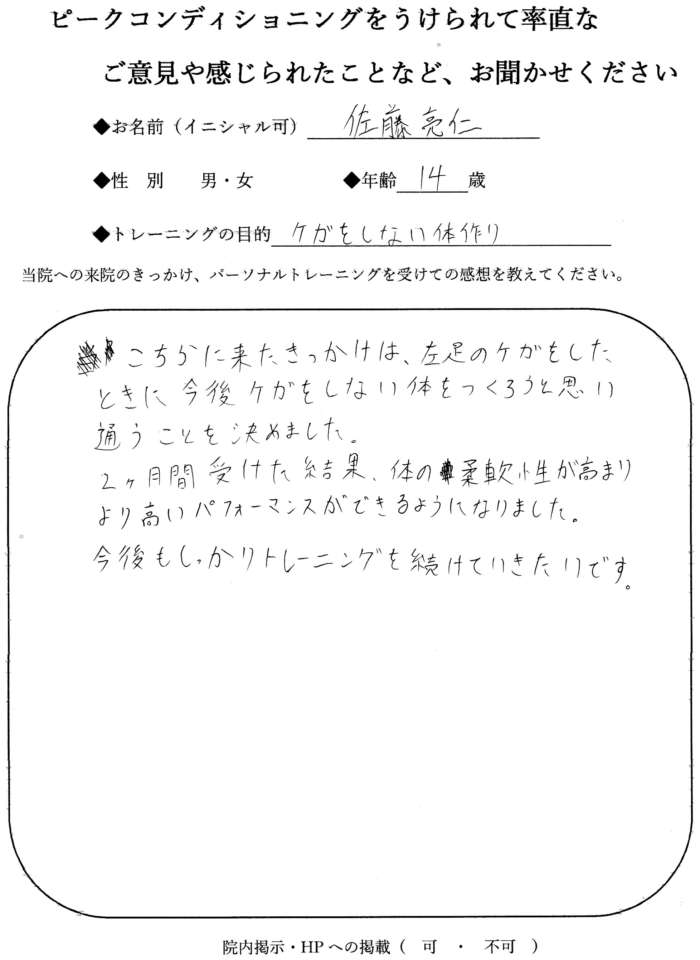 ピークコンディショニングをうけられて率直な
ご意見や感じられたことなど、お聞かせください
◆お名前（イニシャル可） 佐藤亮仁
◆性　別　　男・女　　◆年齢 14 歳
◆トレーニングの目的 ケガをしない体作り
当院への来院のきっかけ、パーソナルトレーニングを受けての感想を教えてください。
こちらに来たきっかけは、左足のケガをした
ときに今後ケガをしない体をつくろうと思い
通うことを決めました。
2ヶ月間受けた結果、体の柔軟性が高まり
より高いパフォーマンスができるようになりました。
今後もしっかりトレーニングを続けていきたいです。
院内掲示・HPへの掲載（　可　・　不可　）